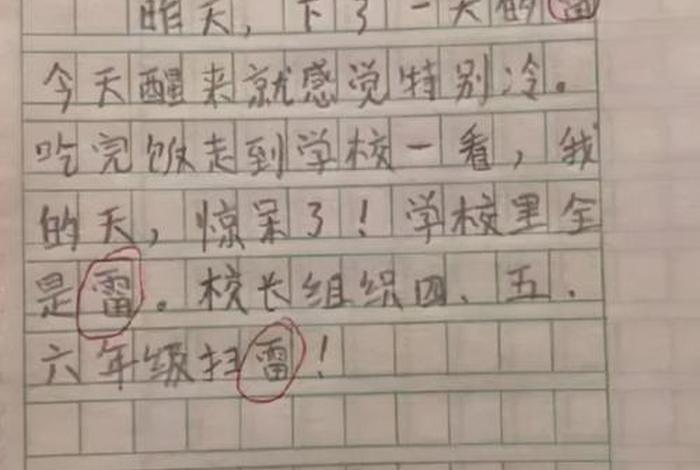 昨天，下了一天的雷
今天醒来就感觉特别冷。
吃完饭走到学校一看，我
的天，惊呆了！学校里全
是雷。校长组织四、五、
六年级扫雷！